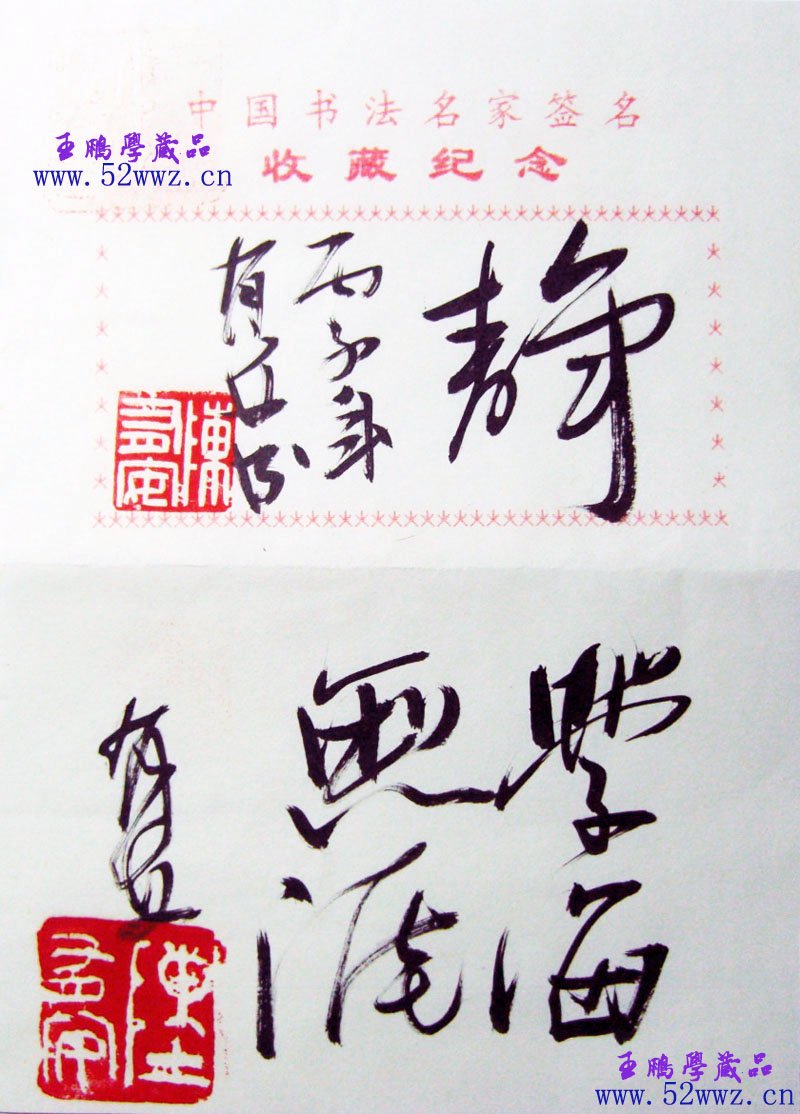 中国书法名家签名
王鵬學藏品
收藏纪念
www.52wwz.cn
静
丙子年
學海
無涯
王鵬學藏品
www.52wwz.cn